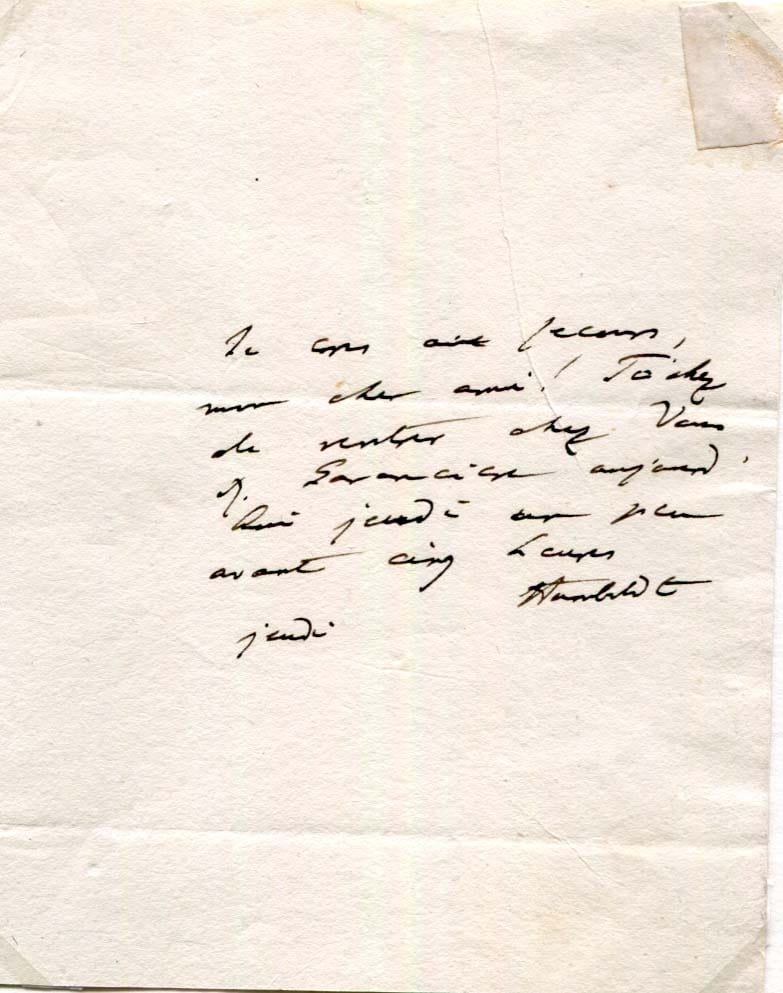 Je cours au secours,
mon cher ami! Tachez
de rentrer chez Vous
r. Garancière aujourd'
hui jeudi un peu
avant cinq heures
Humboldt
jeudi